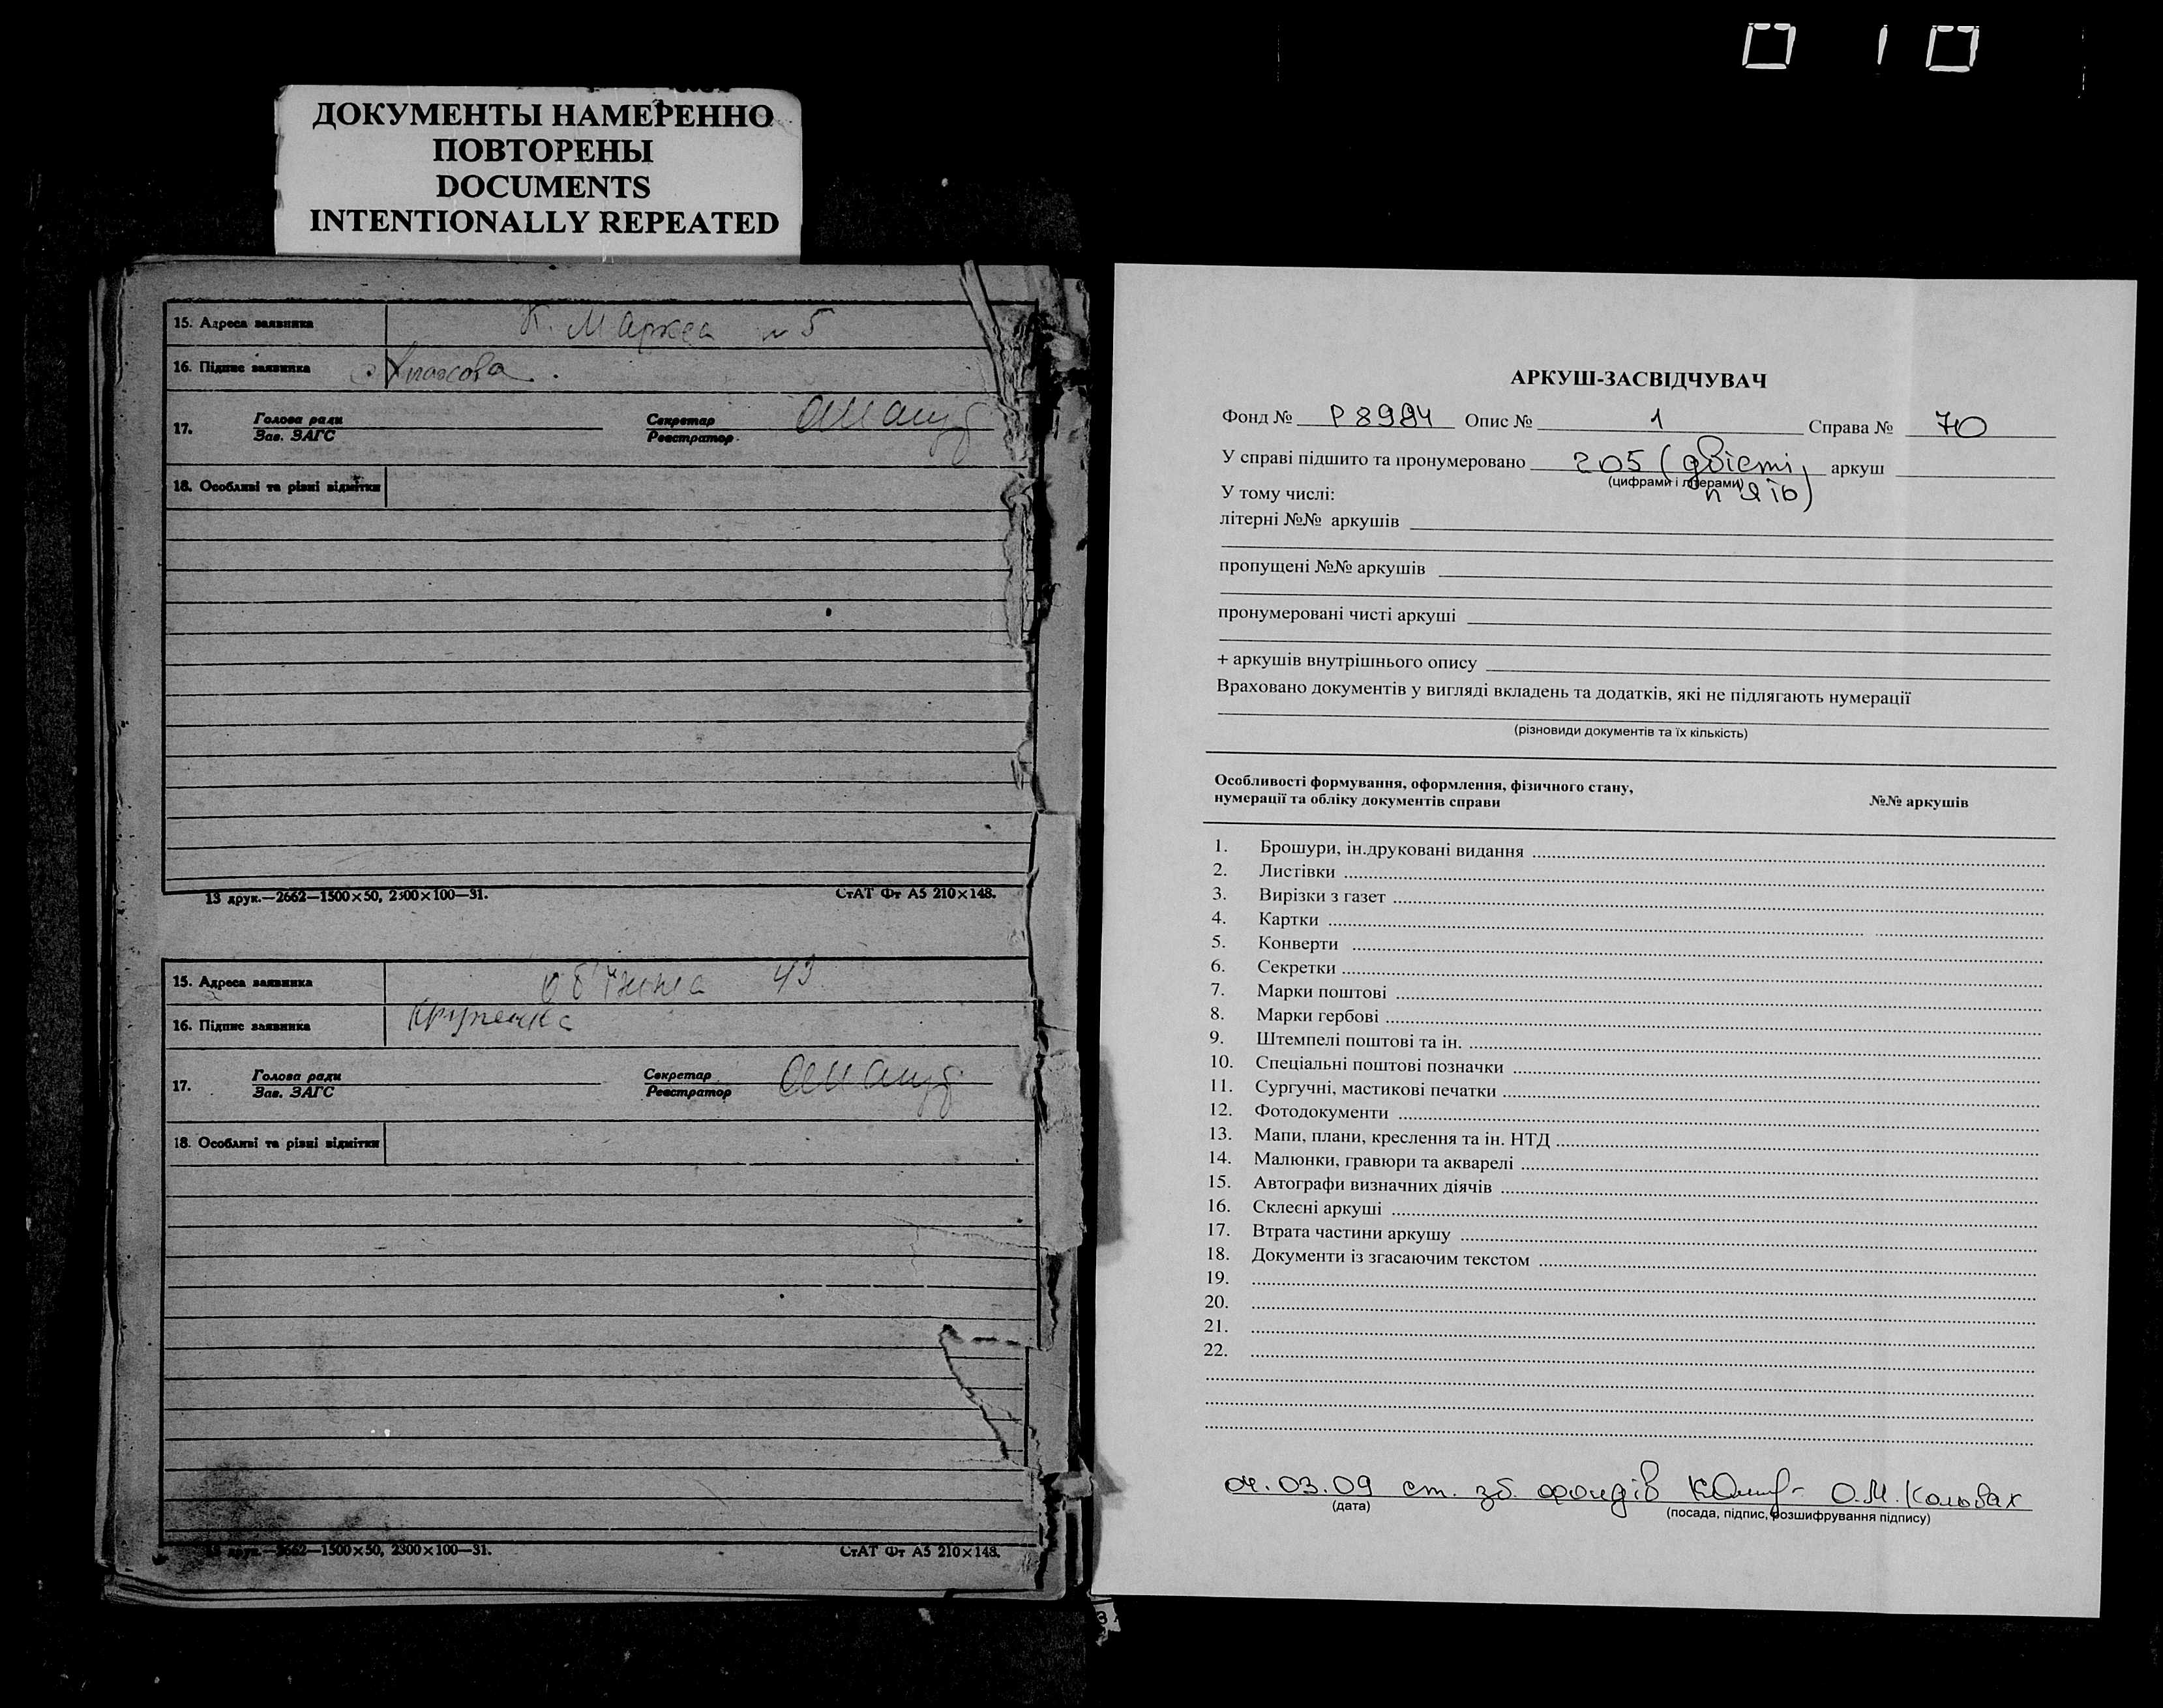 010
ДОКУМЕНТЫ НАМЕРЕННО
ПОВТОРЕНЫ
DOCUMENTS
INTENTIONALLY REPEATED
15. Адреса заявника К. Маркса № 5
16. Підпис заявника
17. Голова ради Секретар
Зав. ЗАГС Реєстратор
18. Особливі та різні відмітки
13 друк.—2662—1500×50, 2300×100—31. СтАТ Фт А5 210×148.
15. Адреса заявника 43
16. Підпис заявника
17. Голова ради Секретар
Зав. ЗАГС Реєстратор
18. Особливі та різні відмітки
13 друк.—2662—1500×50, 2300×100—31. СтАТ Фт А5 210×148.
АРКУШ-ЗАСВІДЧУВАЧ
Фонд № Р 8994 Опис № 1 Справа № 70
У справі підшито та пронумеровано 205 (двісті аркуш
(цифрами і літерами)
п'ять)
У тому числі:
літерні №№ аркушів
пропущені №№ аркушів
пронумеровані чисті аркуші
+ аркушів внутрішнього опису
Враховано документів у вигляді вкладень та додатків, які не підлягають нумерації
(різновиди документів та їх кількість)
Особливості формування, оформлення, фізичного стану,
нумерації та обліку документів справи №№ аркушів
1. Брошури, ін.друковані видання
2. Листівки
3. Вирізки з газет
4. Картки
5. Конверти
6. Секретки
7. Марки поштові
8. Марки гербові
9. Штемпелі поштові та ін.
10. Спеціальні поштові позначки
11. Сургучні, мастикові печатки
12. Фотодокументи
13. Мапи, плани, креслення та ін. НТД
14. Малюнки, гравюри та акварелі
15. Автографи визначних діячів
16. Склеєні аркуші
17. Втрата частини аркушу
18. Документи із згасаючим текстом
19.
20.
21.
22.
04.03.09 ст. зб. фондів О.М. Кольбах
(дата) (посада, підпис, розшифрування підпису)